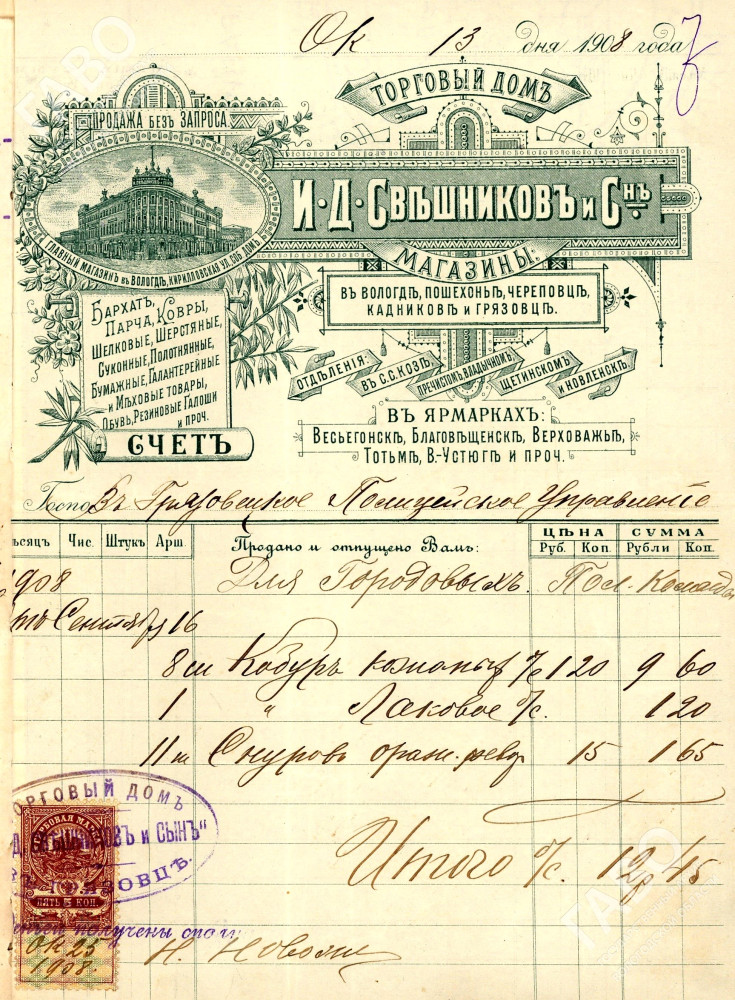 Ок 13 дня 1908 года
ПРОДАЖА БЕЗЪ ЗАПРОСА
ТОРГОВЫЙ ДОМЪ
И·Д·СВѢШНИКОВЪ и СНЪ
ГЛАВНЫЙ МАГАЗИНЪ въ ВОЛОГДѢ, КИРИЛЛОВСКАЯ УЛ. СОБ. ДОМЪ
МАГАЗИНЫ:
ВЪ ВОЛОГДѢ, ПОШЕХОНЬѢ, ЧЕРЕПОВЦѢ,
КАДНИКОВѢ И ГРЯЗОВЦѢ.
БАРХАТЪ,
ПАРЧА, КОВРЫ,
ШЕЛКОВЫЕ, ШЕРСТЯНЫЕ,
СУКОННЫЕ, ПОЛОТНЯННЫЕ,
БУМАЖНЫЕ, ГАЛАНТЕРЕЙНЫЕ
И МѢХОВЫЕ ТОВАРЫ,
ОБУВЬ, РЕЗИНОВЫЕ ГАЛОШИ
И ПРОЧ.
СЧЕТЪ
ОТДѢЛЕНІЯ:
ВЪ С.С. КОЗѢ,
ПРЕЧИСТОМЪ, ВЛАДЫЧНОМЪ,
ЩЕТИНСКОМЪ
И НОВЛЕНСКѢ.
ВЪ ЯРМАРКАХЪ:
ВЕСЬЕГОНСКѢ, БЛАГОВѢЩЕНСКѢ, ВЕРХОВАЖЬѢ,
ТОТЬМѢ, В.-УСТЮГѢ И ПРОЧ.
Госпо Въ Грязовецкое Полицейское Управленіе
ѣсяцъ Чис. Штукъ Арш. Продано и отпущено Вамъ: ЦѢНА СУММА
Руб. Коп. Рубли Коп.
1908 Для Городовыхъ Пол. Команды
Сентября 16
8 шт Кобуръ 1 20 9 60
1 " Лаковое 1 20
11 шт Снуровъ оранж. револ 15 1 65
Итого 12 р 45
ТОРГОВЫЙ ДОМЪ
СВѢШНИКОВЪ и СЫНЪ"
ГРЯЗОВЦѢ
ГЕРБОВАЯ МАРКА
ПЯТЬ 5 КОП.
получены
Ок 25
1908.
Н.
ГАВО